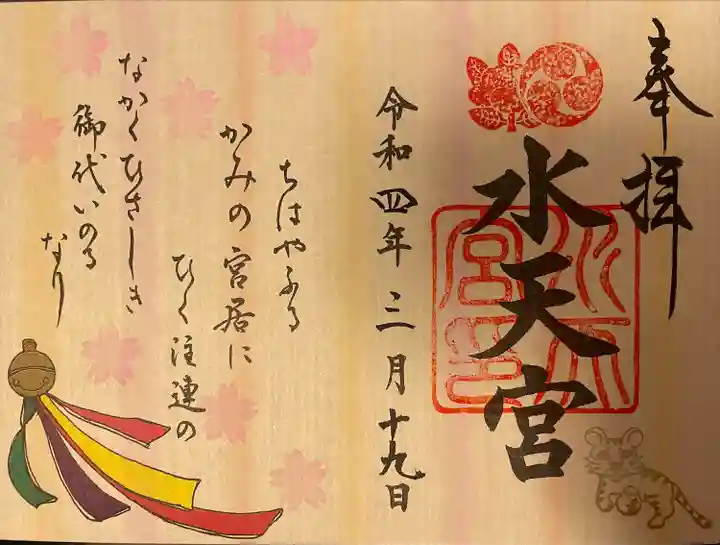 奉拝
水天宮
水天宮印
令和四年三月十九日
ちはやふる
かみの宮居に
ひく注連の
なかくひさしき
御代いのる
なり